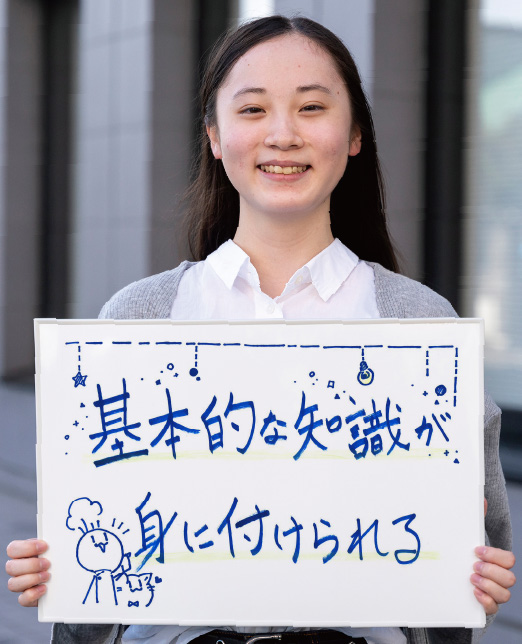 基本的な知識が
身に付けられる